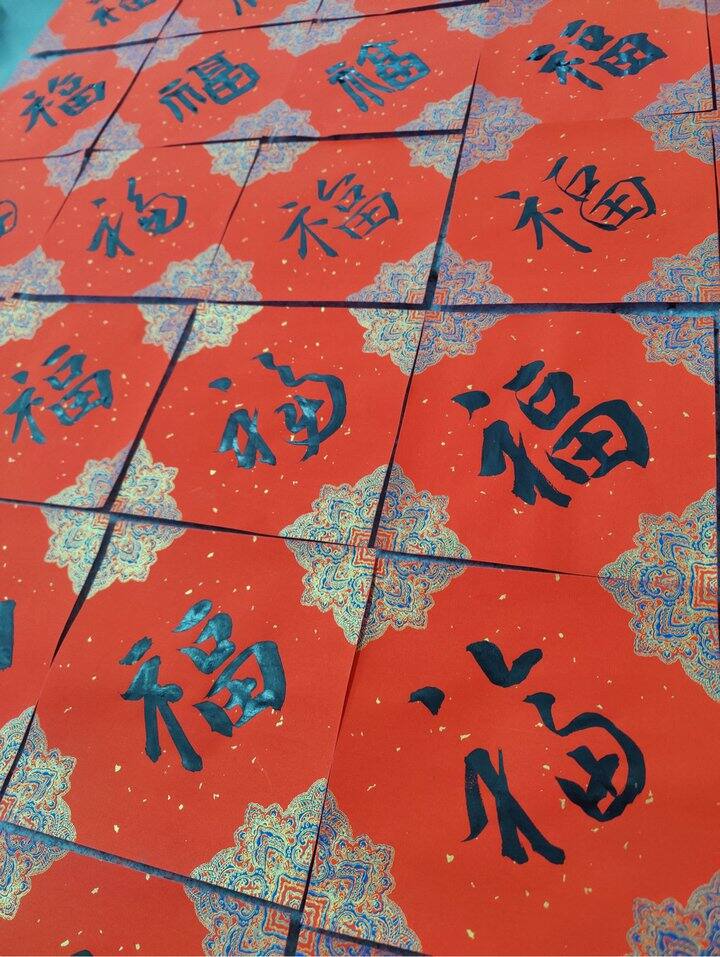 福 福 福 福
福 福 福
福 福 福
福 福